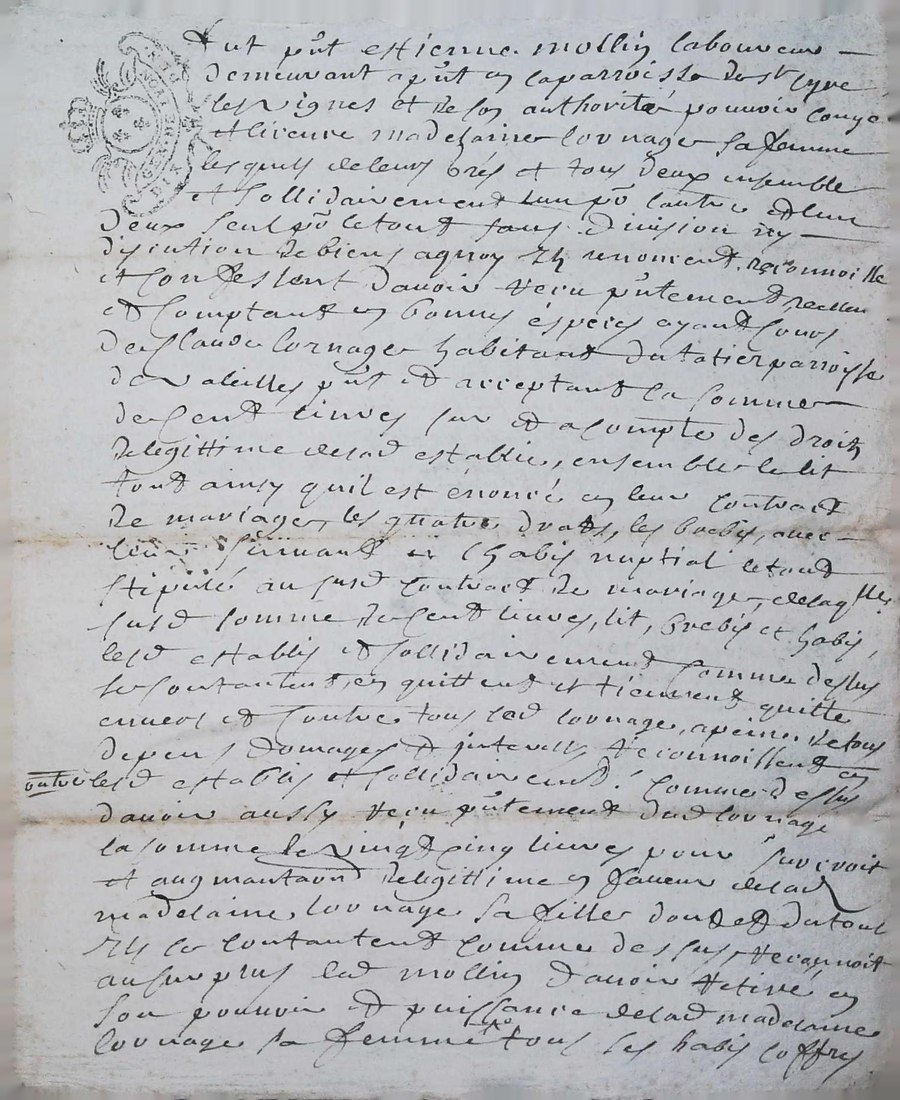 fut pnt estienne mollin laboureur
demeurant apnt en laparroisse de st cyre
les vignes et de son authorité pouvoir conge
et licence madelaine lornage sa femme
lesquels de leurs grés et tous deux ensemble
et sollidairement lun po lautre et lun
deux seul po letout sans division ny
discution de biens aquoy ils renoncent, reconnoisse
et confessent davoir reçu pntement reellem
et comptant en bonnes éspeces ayant cours
de Claude lornage habitant du tatier parroisse
de valeilles pnt et acceptant la somme
de Cent livres sur et acompte des droits
delegittime delad establie, ensemble le lit
tout ainsy quil est énoncé en leur contract
de mariage, les quatre draps, les brebis, avec
leur et lhabit nuptial letout
stipulé aususd contract de mariage, delaqlle
susd somme de Cent livres, lit, brebis et habis,
lesd establis et sollidairement comme dessus
se contantent, en quittent et tiennent quitte
envers et contre tous led lornage, apeine de tous
depens domages et interests reconnoissent en
outre lesd establis et sollidairement comme dessus
davoir aussy reçu pntement dud lornage
la somme de vingt cinq livres pour surcroit
et augmantaon delegittime en faveur delad
madelaine lornage sa fille dont et du tout
ils se contantent comme dessus reconnoit
ausurplus led mollin davoir retiré en
son pouvoir et puissance delad madelaine
lornage sa femme tous ses habis coffres